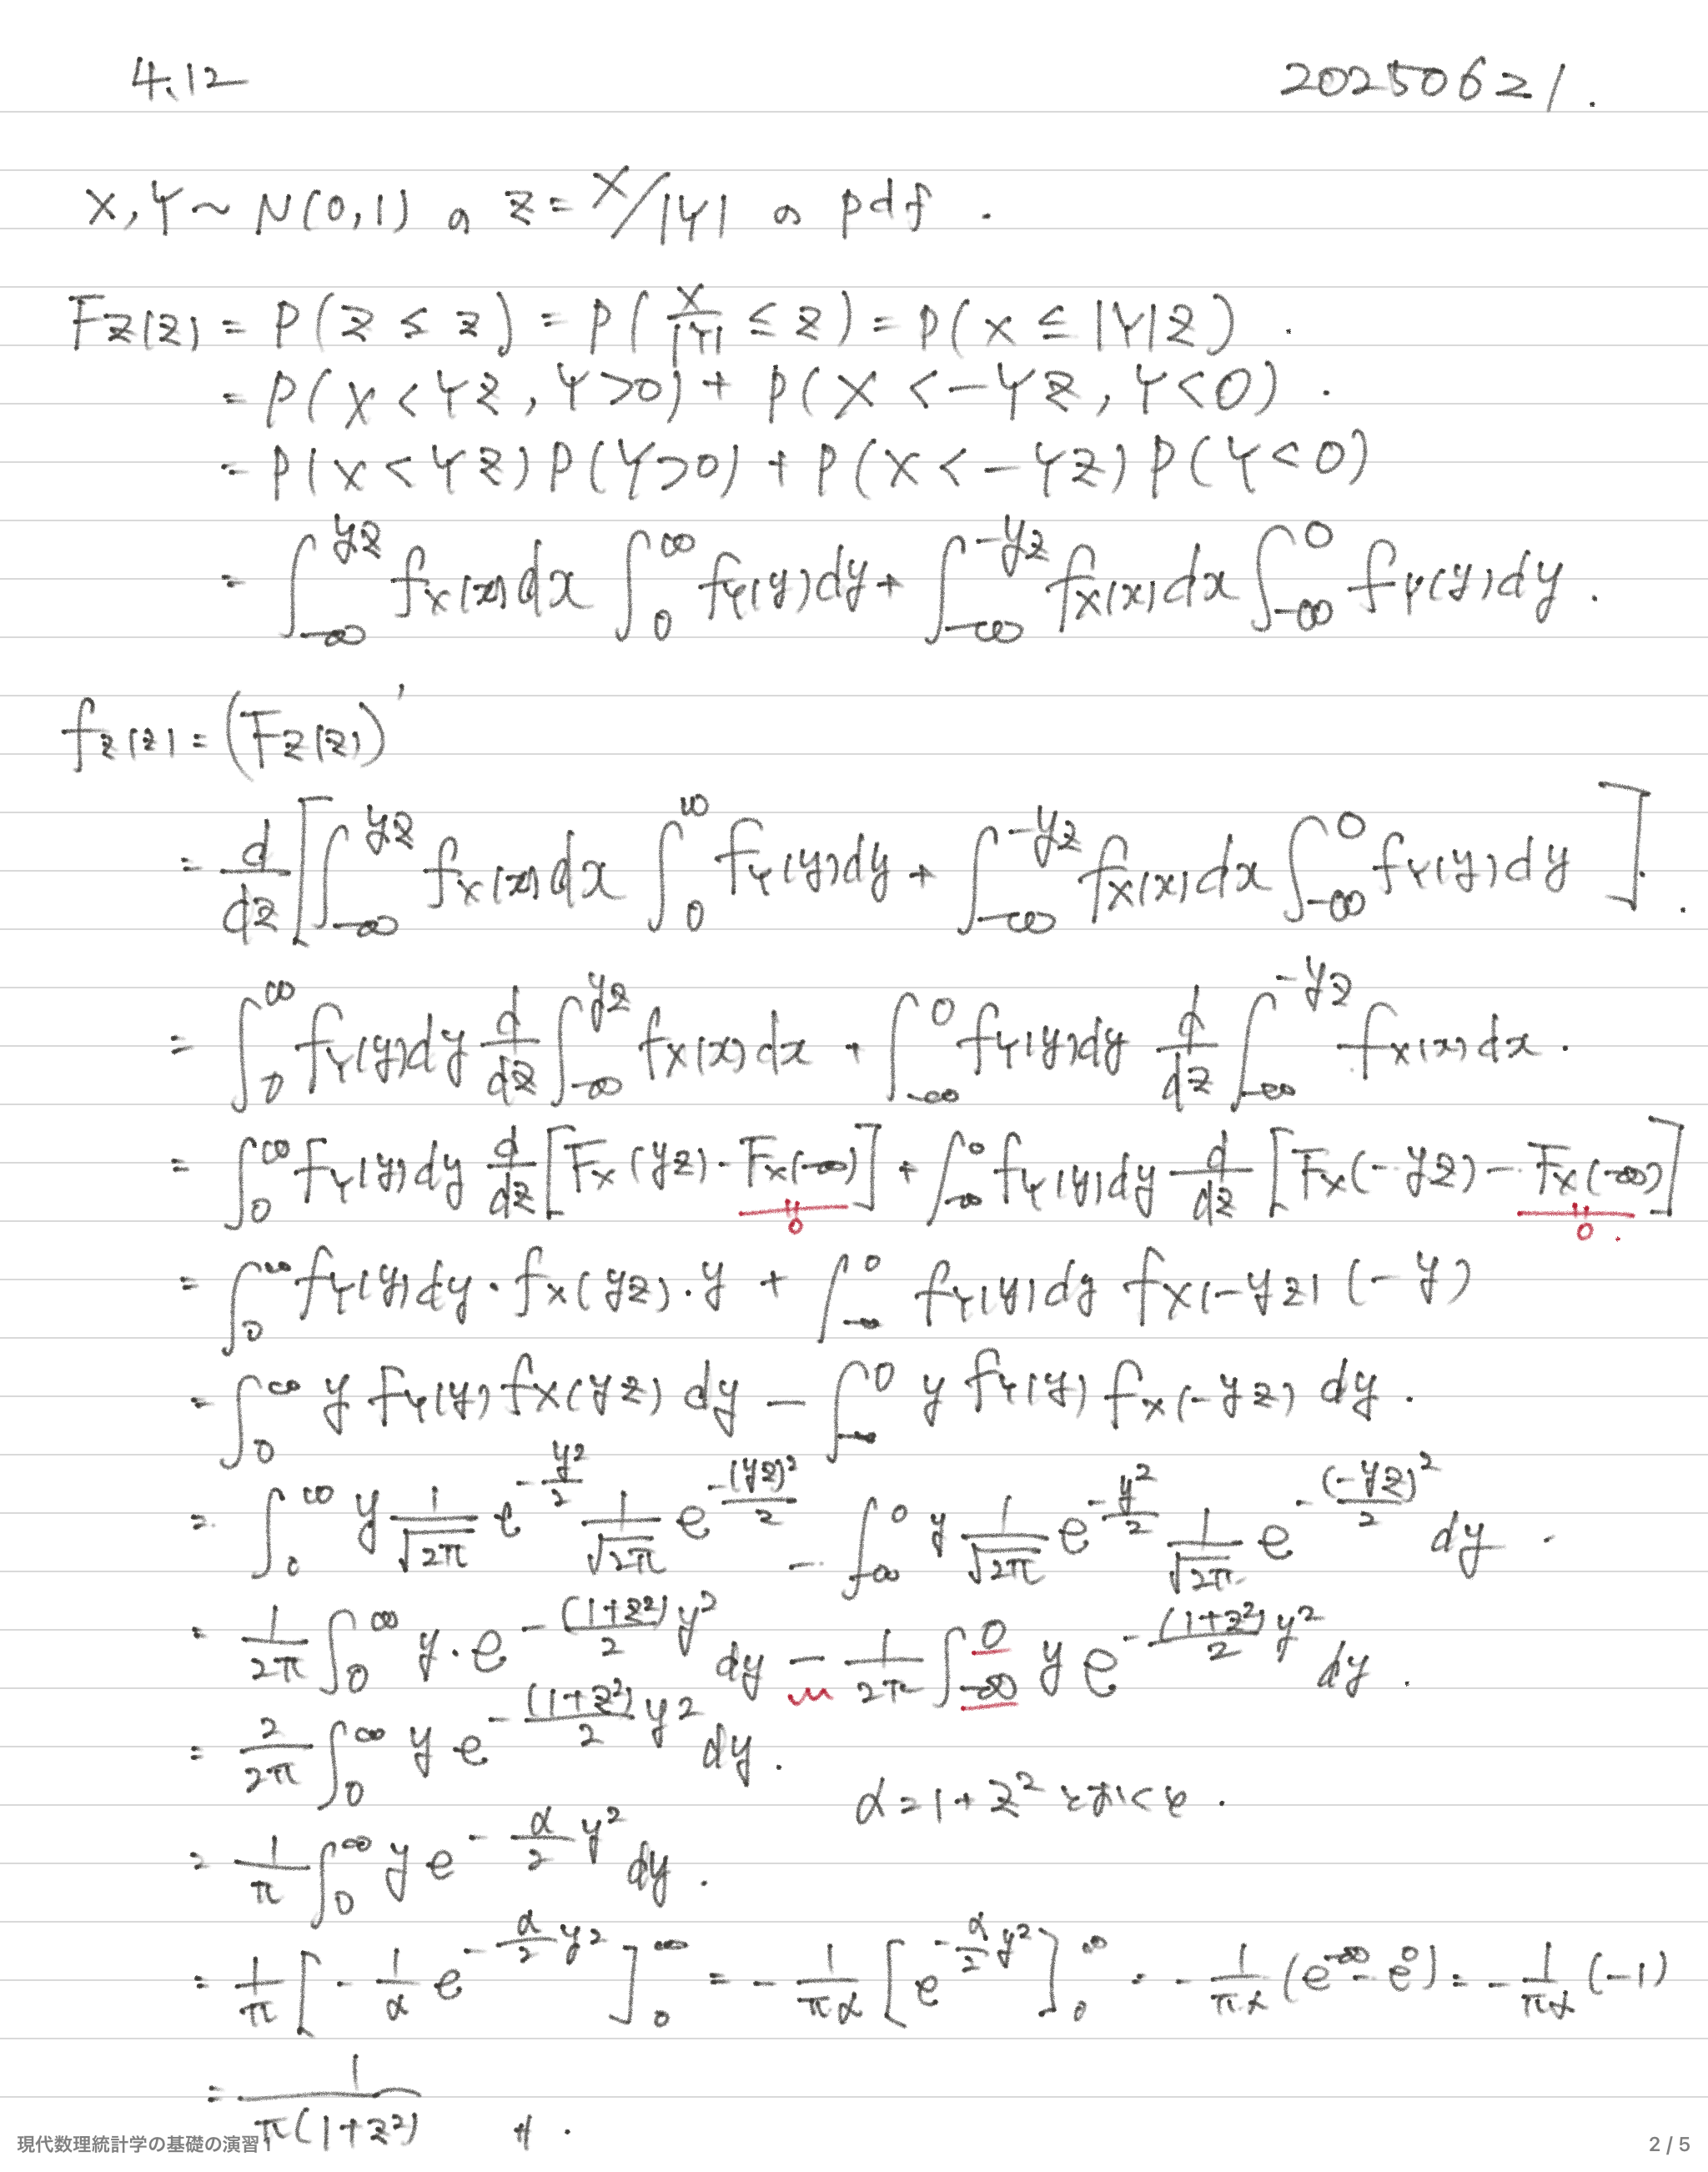 4.12 20250621.
X, Y ~ N(0,1) の Z = X/|Y| の pdf.
F_Z(z) = P(Z ≤ z) = P(X/|Y| ≤ z) = P(X ≤ |Y|z).
= P(X < Yz, Y>0) + P(X < -Yz, Y<0).
= P(X < Yz) P(Y>0) + P(X < -Yz) P(Y<0)
= ∫_{-∞}^{yz} f_X(x) dx ∫_0^∞ f_Y(y) dy + ∫_{-∞}^{-yz} f_X(x) dx ∫_{-∞}^0 f_Y(y) dy.
f_Z(z) = (F_Z(z))'
= d/dz [∫_{-∞}^{yz} f_X(x) dx ∫_0^∞ f_Y(y) dy + ∫_{-∞}^{-yz} f_X(x) dx ∫_{-∞}^0 f_Y(y) dy].
= ∫_0^∞ f_Y(y) dy d/dz ∫_{-∞}^{yz} f_X(x) dx + ∫_{-∞}^0 f_Y(y) dy d/dz ∫_{-∞}^{-yz} f_X(x) dx.
= ∫_0^∞ f_Y(y) dy d/dz [F_X(yz) - F_X(-∞)] + ∫_{-∞}^0 f_Y(y) dy d/dz [F_X(-yz) - F_X(-∞)]
= 0 = 0.
= ∫_0^∞ f_Y(y) dy · f_X(yz) · y + ∫_{-∞}^0 f_Y(y) dy f_X(-yz) (-y)
= ∫_0^∞ y f_Y(y) f_X(yz) dy - ∫_{-∞}^0 y f_Y(y) f_X(-yz) dy.
= ∫_0^∞ y 1/√2π e^{-y²/2} 1/√2π e^{-(yz)²/2} - ∫_{-∞}^0 y 1/√2π e^{-y²/2} 1/√2π e^{-(-yz)²/2} dy.
= 1/2π ∫_0^∞ y · e^{-(1+z²)/2 y²} dy - 1/2π ∫_{-∞}^0 y e^{-(1+z²)/2 y²} dy.
= 2/2π ∫_0^∞ y e^{-(1+z²)/2 y²} dy.
α = 1 + z² とおくと.
= 1/π ∫_0^∞ y e^{-α/2 y²} dy.
= 1/π [-1/α e^{-α/2 y²}]_0^∞ = -1/πα [e^{-α/2 y²}]_0^∞ = -1/πα (e^{-∞} - e^0) = -1/πα (-1)
= 1/π(1+z²) //.
現代数理統計学の基礎の演習 1 2 / 5